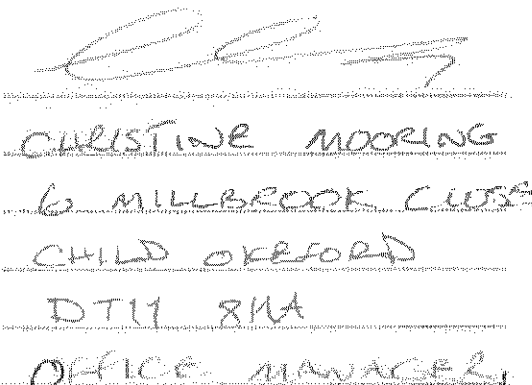 CHRISTINE MOORING
6 MILLBROOK CLOSE
CHILD OKEFORD
DT11 8HA
OFFICE MANAGER.